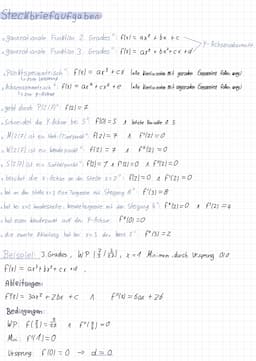 Steckbriefaufgaben
• ganzrationale Funktion 2. Grades": f(x) = ax² + bx + c
• ganzrationale Funktion 3. Grades": f(x) = ax³ + bx² + cx + d
y-Achsenabschnitt
• Punktsymmetrisch": f(x) = ax³ + cx (alle Koeffizienten mit geraden Exponenten fallen weg)
zum Ursprung
• Achsensymmetrisch": f(x) = ax⁴ + cx² + e (alle Koeffizienten mit ungeraden Exponenten fallen weg)
zur y-Achse
• geht durch P(2|7)": f(2) = 7
• Schneidet die y-Achse bei 5": f(0) = 5
• H(2|7) ist ein Hoch-/Tiefpunkt": f(2) = 7 ∧ f'(2) = 0
• W(2|7) ist ein Wendepunkt": f(2) = 7 ∧ f"(2) = 0
• S(2|7) ist ein Sattelpunkt": f(2) = 7 ∧ f'(2) = 0 ∧ f"(2) = 0
• berührt die x-Achse an der Stelle x=2": f(2) = 0 ∧ f'(2) = 0
• hat an der Stelle x=3 eine Tangente mit Steigung 8": f'(3) = 8
• hat bei x=2 Wendestelle, Wendetangente mit der Steigung 4": f"(2) = 0 ∧ f'(2) = 4
• hat einen Wendepunkt auf der y-Achse: f"(0) = 0
• die zweite Ableitung hat bei x=3 den Wert 2": f"(3) = 2
Beispiel: 3. Grades, WP, x=1 Minimum, durch Ursprung 0|0
f(x) = ax³ + bx² + cx + d
Ableitungen:
f'(x) = 3ax² + 2bx + c ∧ f"(x) = 6ax + 2b
Bedingungen:
WP:
Min: f'(1) = 0
Ursprung: f(0) = 0 → d = 0